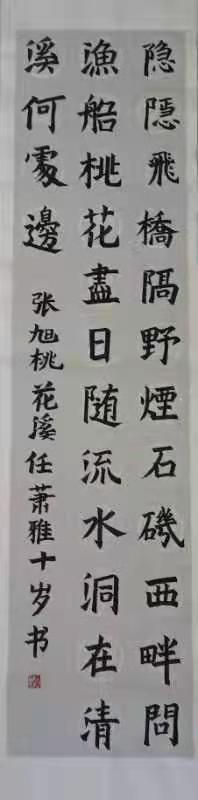 隐隱飛橋隔野煙石磯西畔問
漁船桃花盡日随流水洞在清
溪何處邊
张旭桃花溪任萧雅十岁书